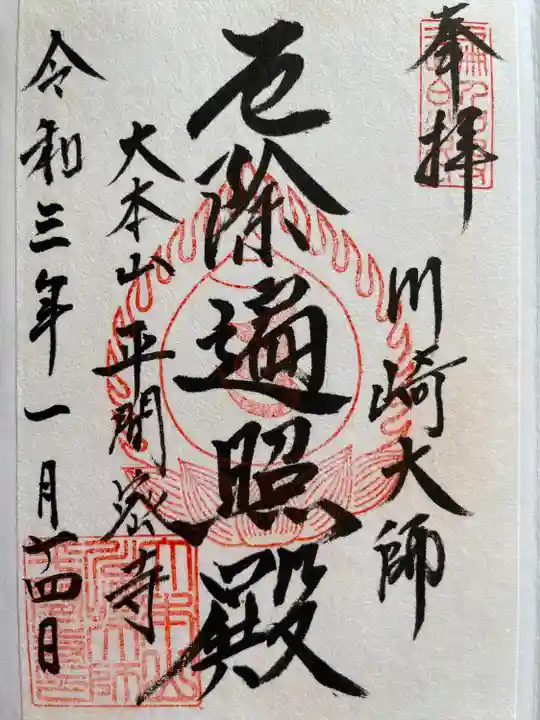 奉拝
川崎大師
厄除遍照殿
大本山平間寺
令和三年一月十四日